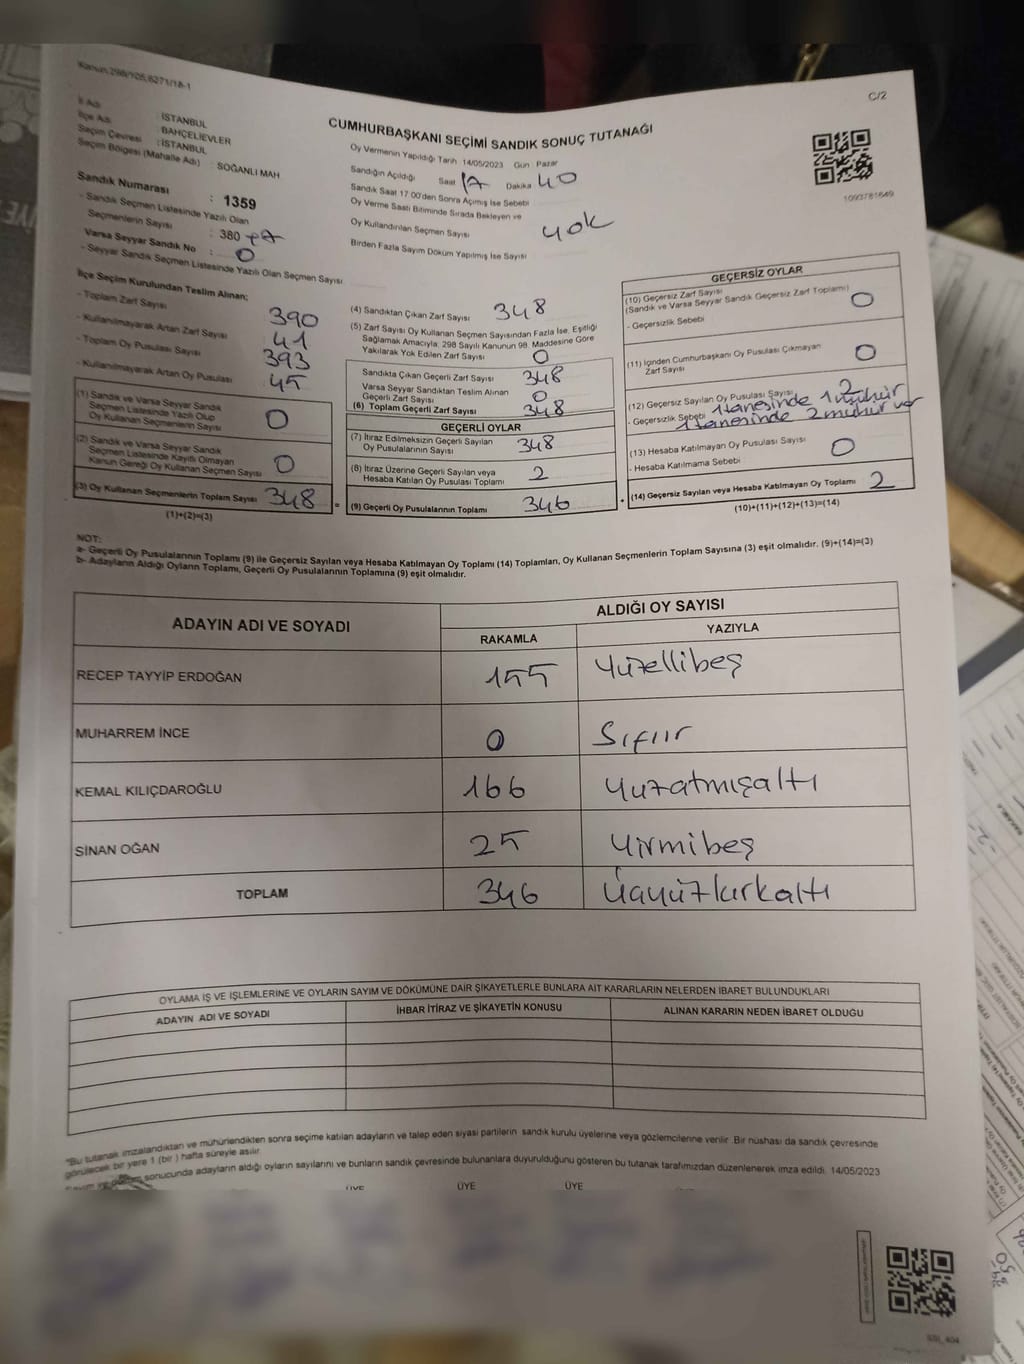 Kanun:298/105,6271/18-1
C/2
CUMHURBAŞKANI SEÇİMİ SANDIK SONUÇ TUTANAĞI
İl Adı : İSTANBUL
İlçe Adı : BAHÇELİEVLER
Seçim Çevresi : İSTANBUL
Seçim Bölgesi (Mahalle Adı) : SOĞANLI MAH
Sandık Numarası : 1359
- Sandık Seçmen Listesinde Yazılı Olan
Seçmenlerin Sayısı : 380
Varsa Seyyar Sandık No : 0
- Seyyar Sandık Seçmen Listesinde Yazılı Olan Seçmen Sayısı
Oy Vermenin Yapıldığı Tarih 14/05/2023 Gün : Pazar
Sandığın Açıldığı Saat 17 Dakika 40
Sandık Saat 17.00'den Sonra Açmış İse Sebebi
Oy Verme Saati Bitiminde Sırada Bekleyen ve
Oy Kullandırılan Seçmen Sayısı yok
Birden Fazla Sayım Döküm Yapılmış İse Sayısı
1093781649
İlçe Seçim Kurulundan Teslim Alınan;
- Toplam Zarf Sayısı 390
- Kullanılmayarak Artan Zarf Sayısı 41
- Toplam Oy Pusulası Sayısı 393
- Kullanılmayarak Artan Oy Pusulası 45
(1) Sandık ve Varsa Seyyar Sandık
Seçmen Listesinde Yazılı Olup
Oy Kullanan Seçmenlerin Sayısı 0
(2) Sandık ve Varsa Seyyar Sandık
Seçmen Listesinde Kayıtlı Olmayan
Kanun Gereği Oy Kullanan Seçmen Sayısı 0
(3) Oy Kullanan Seçmenlerin Toplam Sayısı 348 =
(1)+(2)=(3)
(4) Sandıktan Çıkan Zarf Sayısı 348
(5) Zarf Sayısı Oy Kullanan Seçmen Sayısından Fazla İse, Eşitliği
Sağlamak Amacıyla; 298 Sayılı Kanunun 98. Maddesine Göre
Yakılarak Yok Edilen Zarf Sayısı 0
Sandıkta Çıkan Geçerli Zarf Sayısı 348
Varsa Seyyar Sandıktan Teslim Alınan
Geçerli Zarf Sayısı 0
(6) Toplam Geçerli Zarf Sayısı 348
GEÇERLİ OYLAR
(7) İtiraz Edilmeksizin Geçerli Sayılan
Oy Pusulalarının Sayısı 348
(8) İtiraz Üzerine Geçerli Sayılan veya
Hesaba Katılan Oy Pusulası Toplamı 2
(9) Geçerli Oy Pusulalarının Toplamı 346 +
GEÇERSİZ OYLAR
(10) Geçersiz Zarf Sayısı
(Sandık ve Varsa Seyyar Sandık Geçersiz Zarf Toplamı) 0
- Geçersizlik Sebebi
(11) İçinden Cumhurbaşkanı Oy Pusulası Çıkmayan
Zarf Sayısı 0
(12) Geçersiz Sayılan Oy Pusulası Sayısı 2
- Geçersizlik Sebebi 1 tanesinde 1 mühür
1 tanesinde 2 mühür var
(13) Hesaba Katılmayan Oy Pusulası Sayısı 0
- Hesaba Katılmama Sebebi
(14) Geçersiz Sayılan veya Hesaba Katılmayan Oy Toplamı 2
(10)+(11)+(12)+(13)=(14)
NOT:
a- Geçerli Oy Pusulalarının Toplamı (9) ile Geçersiz Sayılan veya Hesaba Katılmayan Oy Toplamı (14) Toplamları, Oy Kullanan Seçmenlerin Toplam Sayısına (3) eşit olmalıdır. (9)+(14)=(3)
b- Adayların Aldığı Oyların Toplamı, Geçerli Oy Pusulalarının Toplamına (9) eşit olmalıdır.
ADAYIN ADI VE SOYADI ALDIĞI OY SAYISI
RAKAMLA YAZIYLA
RECEP TAYYİP ERDOĞAN 155 Yüzellibeş
MUHARREM İNCE 0 Sıfıır
KEMAL KILIÇDAROĞLU 166 Yuzatmışaltı
SİNAN OĞAN 25 Yirmibeş
TOPLAM 346 Üçyüzkırkaltı
OYLAMA İŞ VE İŞLEMLERİNE VE OYLARIN SAYIM VE DÖKÜMÜNE DAİR ŞİKAYETLERLE BUNLARA AİT KARARLARIN NELERDEN İBARET BULUNDUKLARI
ADAYIN ADI VE SOYADI İHBAR İTİRAZ VE ŞİKAYETİN KONUSU ALINAN KARARIN NEDEN İBARET OLDUĞU
"Bu tutanak imzalandıktan ve mühürlendikten sonra seçime katılan adayların ve talep eden siyasi partilerin sandık kurulu üyelerine veya gözlemcilerine verilir. Bir nüshası da sandık çevresinde
görülecek bir yere 1 (bir) hafta süreyle asılır.
Sayım ve döküm sonucunda adayların aldığı oyların sayılarını ve bunların sandık çevresinde bulunanlara duyurulduğunu gösteren bu tutanak tarafımızdan düzenlenerek imza edildi. 14/05/2023
ÜYE ÜYE ÜYE